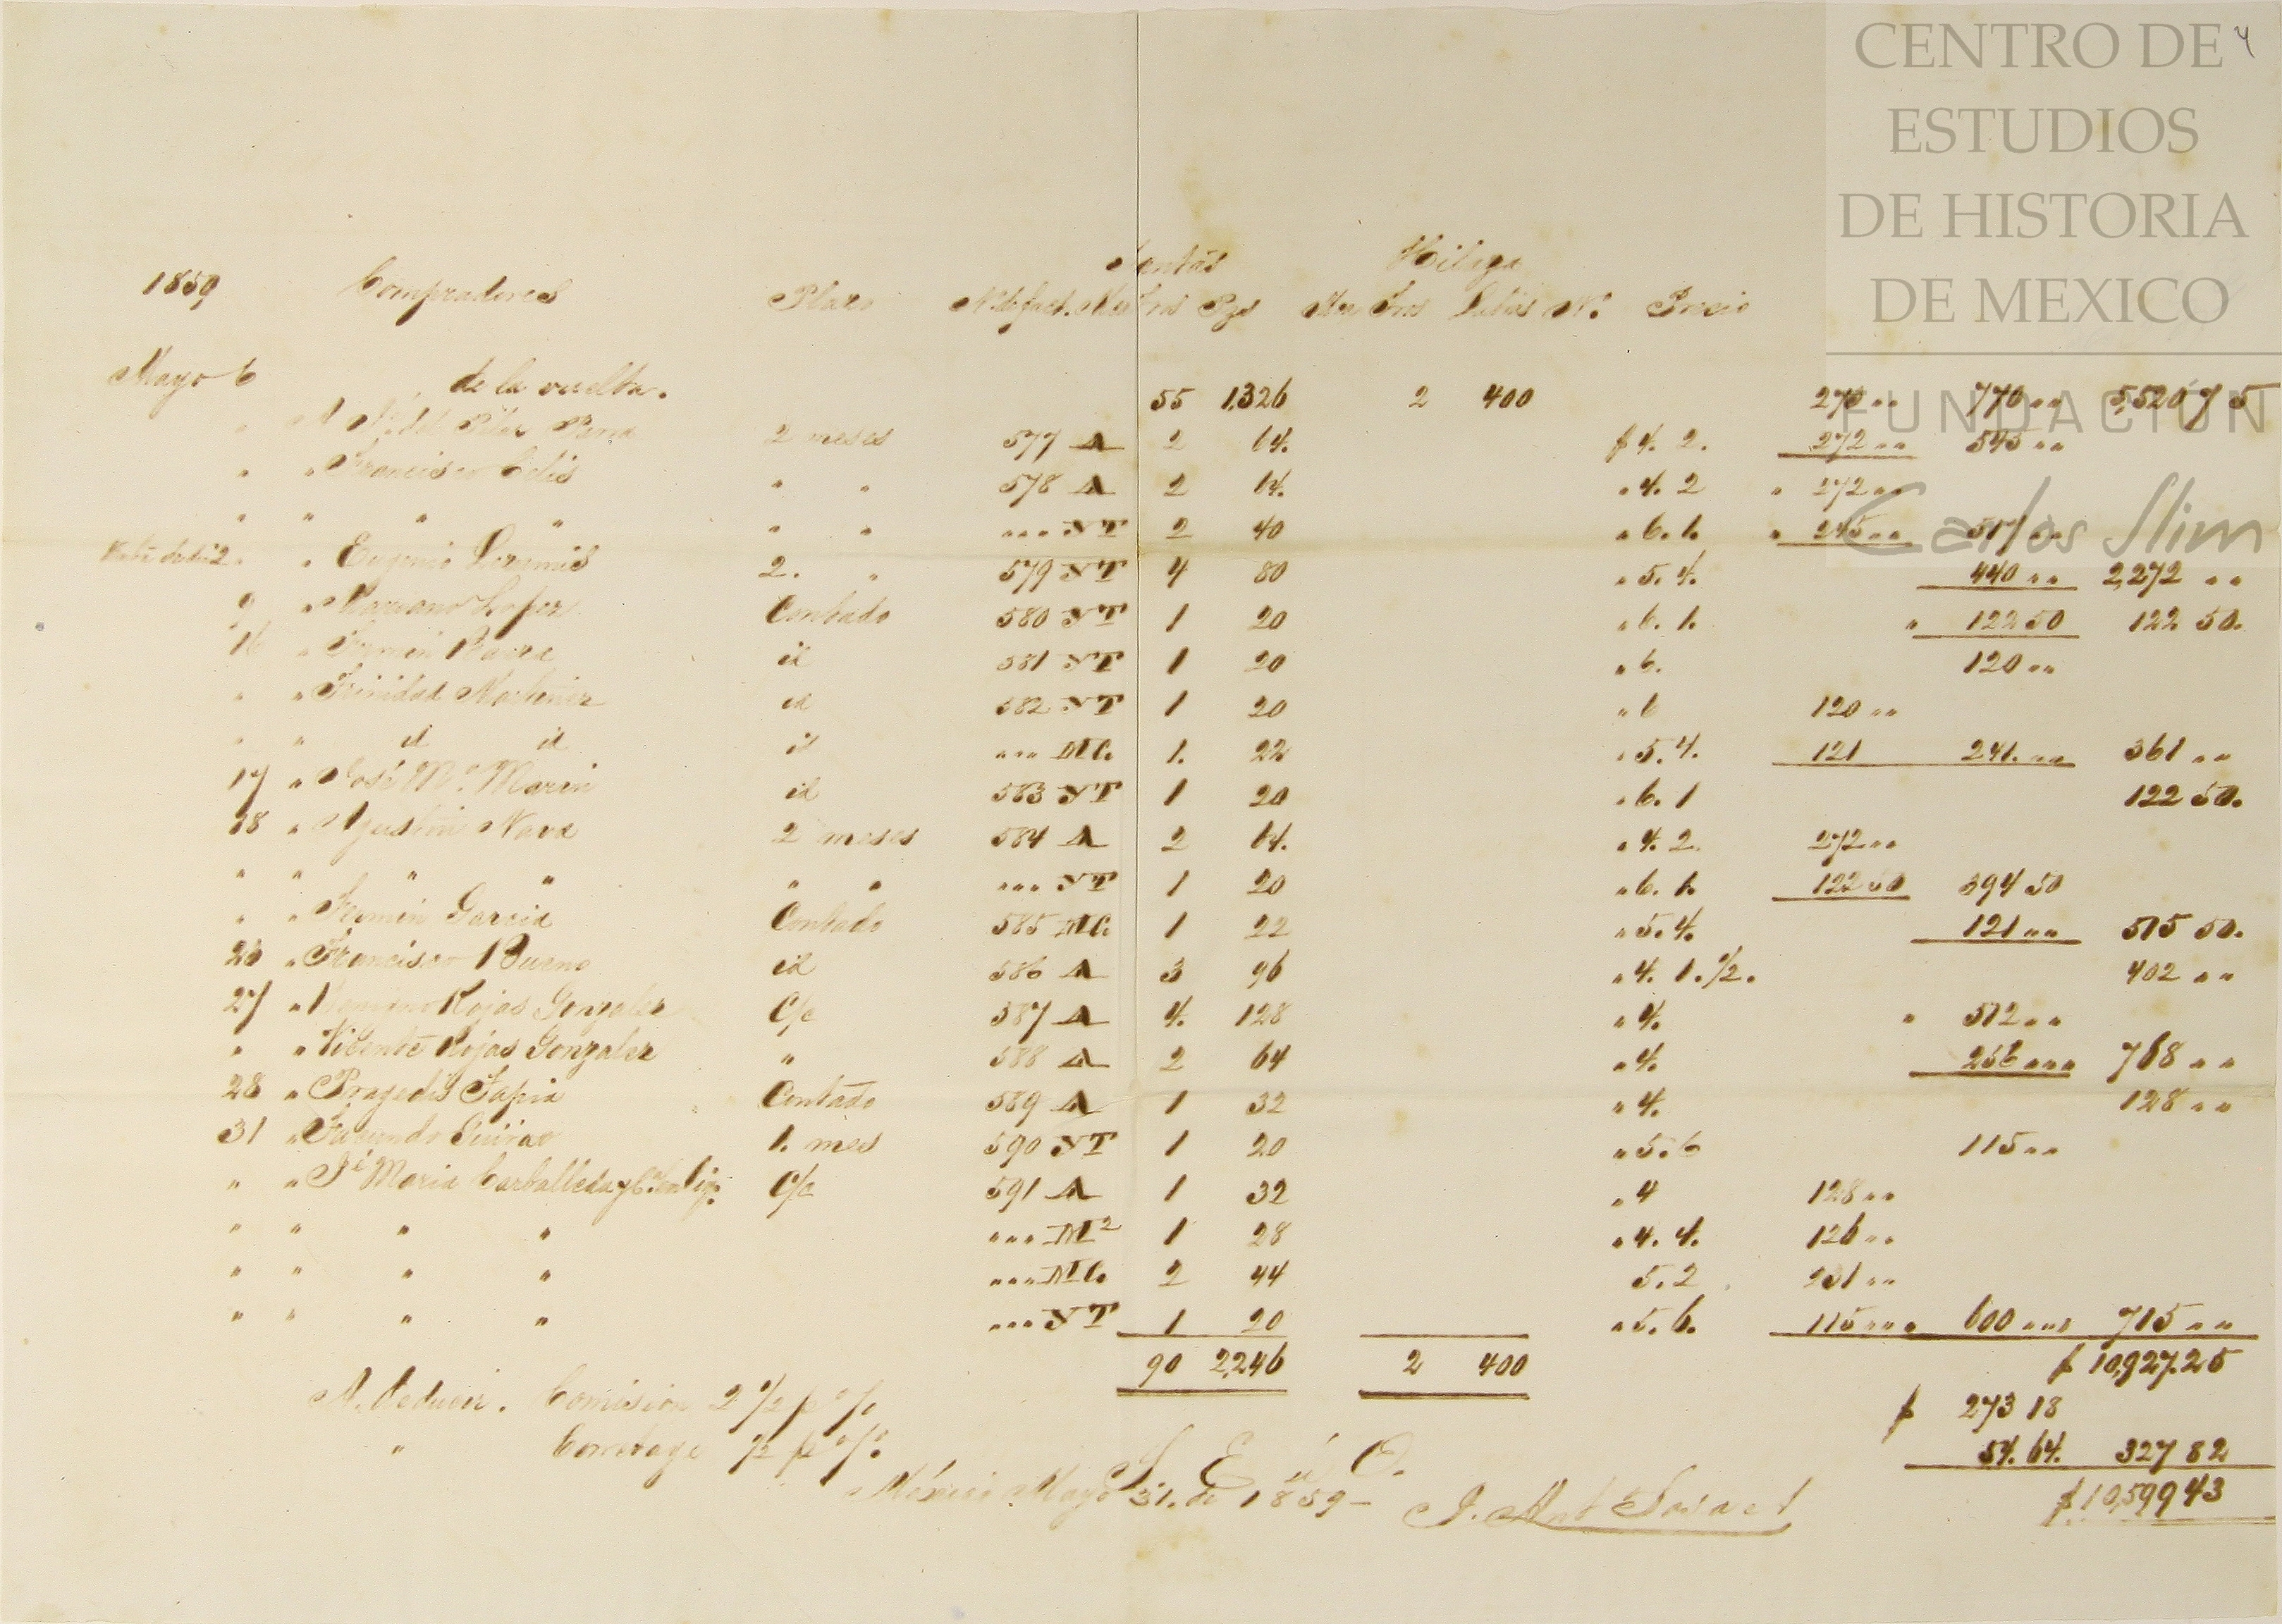 CENTRO DE
ESTUDIOS
DE HISTORIA
DE MEXICO
FUNDACION
Carlos Slim
4
Mantas Hilaza
1859 Compradores Plazo N. de fact. Mca Tros Pzs Mca Tros Libras N.º Precio
Mayo 6 de la vuelta. 55 1,326 2 400 275 " " 770 " " 5,520 75
" del Pilar Parra 2 meses 577 A 2 64. $ 4. 2. 272 " " 545 " "
" " Francisco Celis " " 578 A 2 64. " 4. 2 " 272 " "
" " " " " " " " " NT 2 40 " 6. 1. " 245 " " 517 " "
" Eugenio 2. " 579 NT 4 80 " 5. 4. 440 " " 2,272 " "
9 " Mariano Lopez Contado 580 NT 1 20 " 6. 1. " 122 50 122 50.
16 " Fermin Baeza id 581 NT 1 20 " 6. 120 " "
" " Trinidad Martinez id 582 NT 1 20 " 6 120 " "
" " id id id " " " MC. 1. 22 " 5. 4. 121 241. " " 361 " "
17 " José Mª. Marin id 583 NT 1 20 " 6. 1 122 50.
18 " Agustin Nava 2 meses 584 A 2 64. " 4. 2. 272 " "
" " " " " " " " " NT 1 20 " 6. 1. 122 50 394 50
" " Fermin Garcia Contado 585 MC. 1 22 " 5. 4. 121 " " 515 50.
26 " Francisco Bueno id 586 A 3 96 " 4. 1. 1/2. 402 " "
27 " Rojas Gonzalez C/c 587 A 4. 128 " 4. " 512 " "
" " Vicente Rojas Gonzalez " 588 A 2 64 " 4. 256 " " " 768 " "
28 " Pragedis Tapia Contado 589 A 1 32 " 4. 128 " "
31 " Facundo 1. mes 590 NT 1 20 " 5. 6 115 " "
" " Jé Maria Carballeda y Cª. en liq. C/c 591 A 1 32 " 4 128 " "
" " " " " " " M2 1 28 " 4. 4. 126 " "
" " " " " " " MC. 2 44 5. 2 231 " "
" " " " " " " NT 1 20 " 5. 6. 115 " " " 600 " " " 715 " "
90 2,246 2 400 $ 10,927.25
A deducir. Comision 2 1/2 p % $ 273 18
" Corretage 1/2 p % 54. 64. 327 82
S. E. ú O. $ 10,599 43
México Mayo 31. de 1859 –